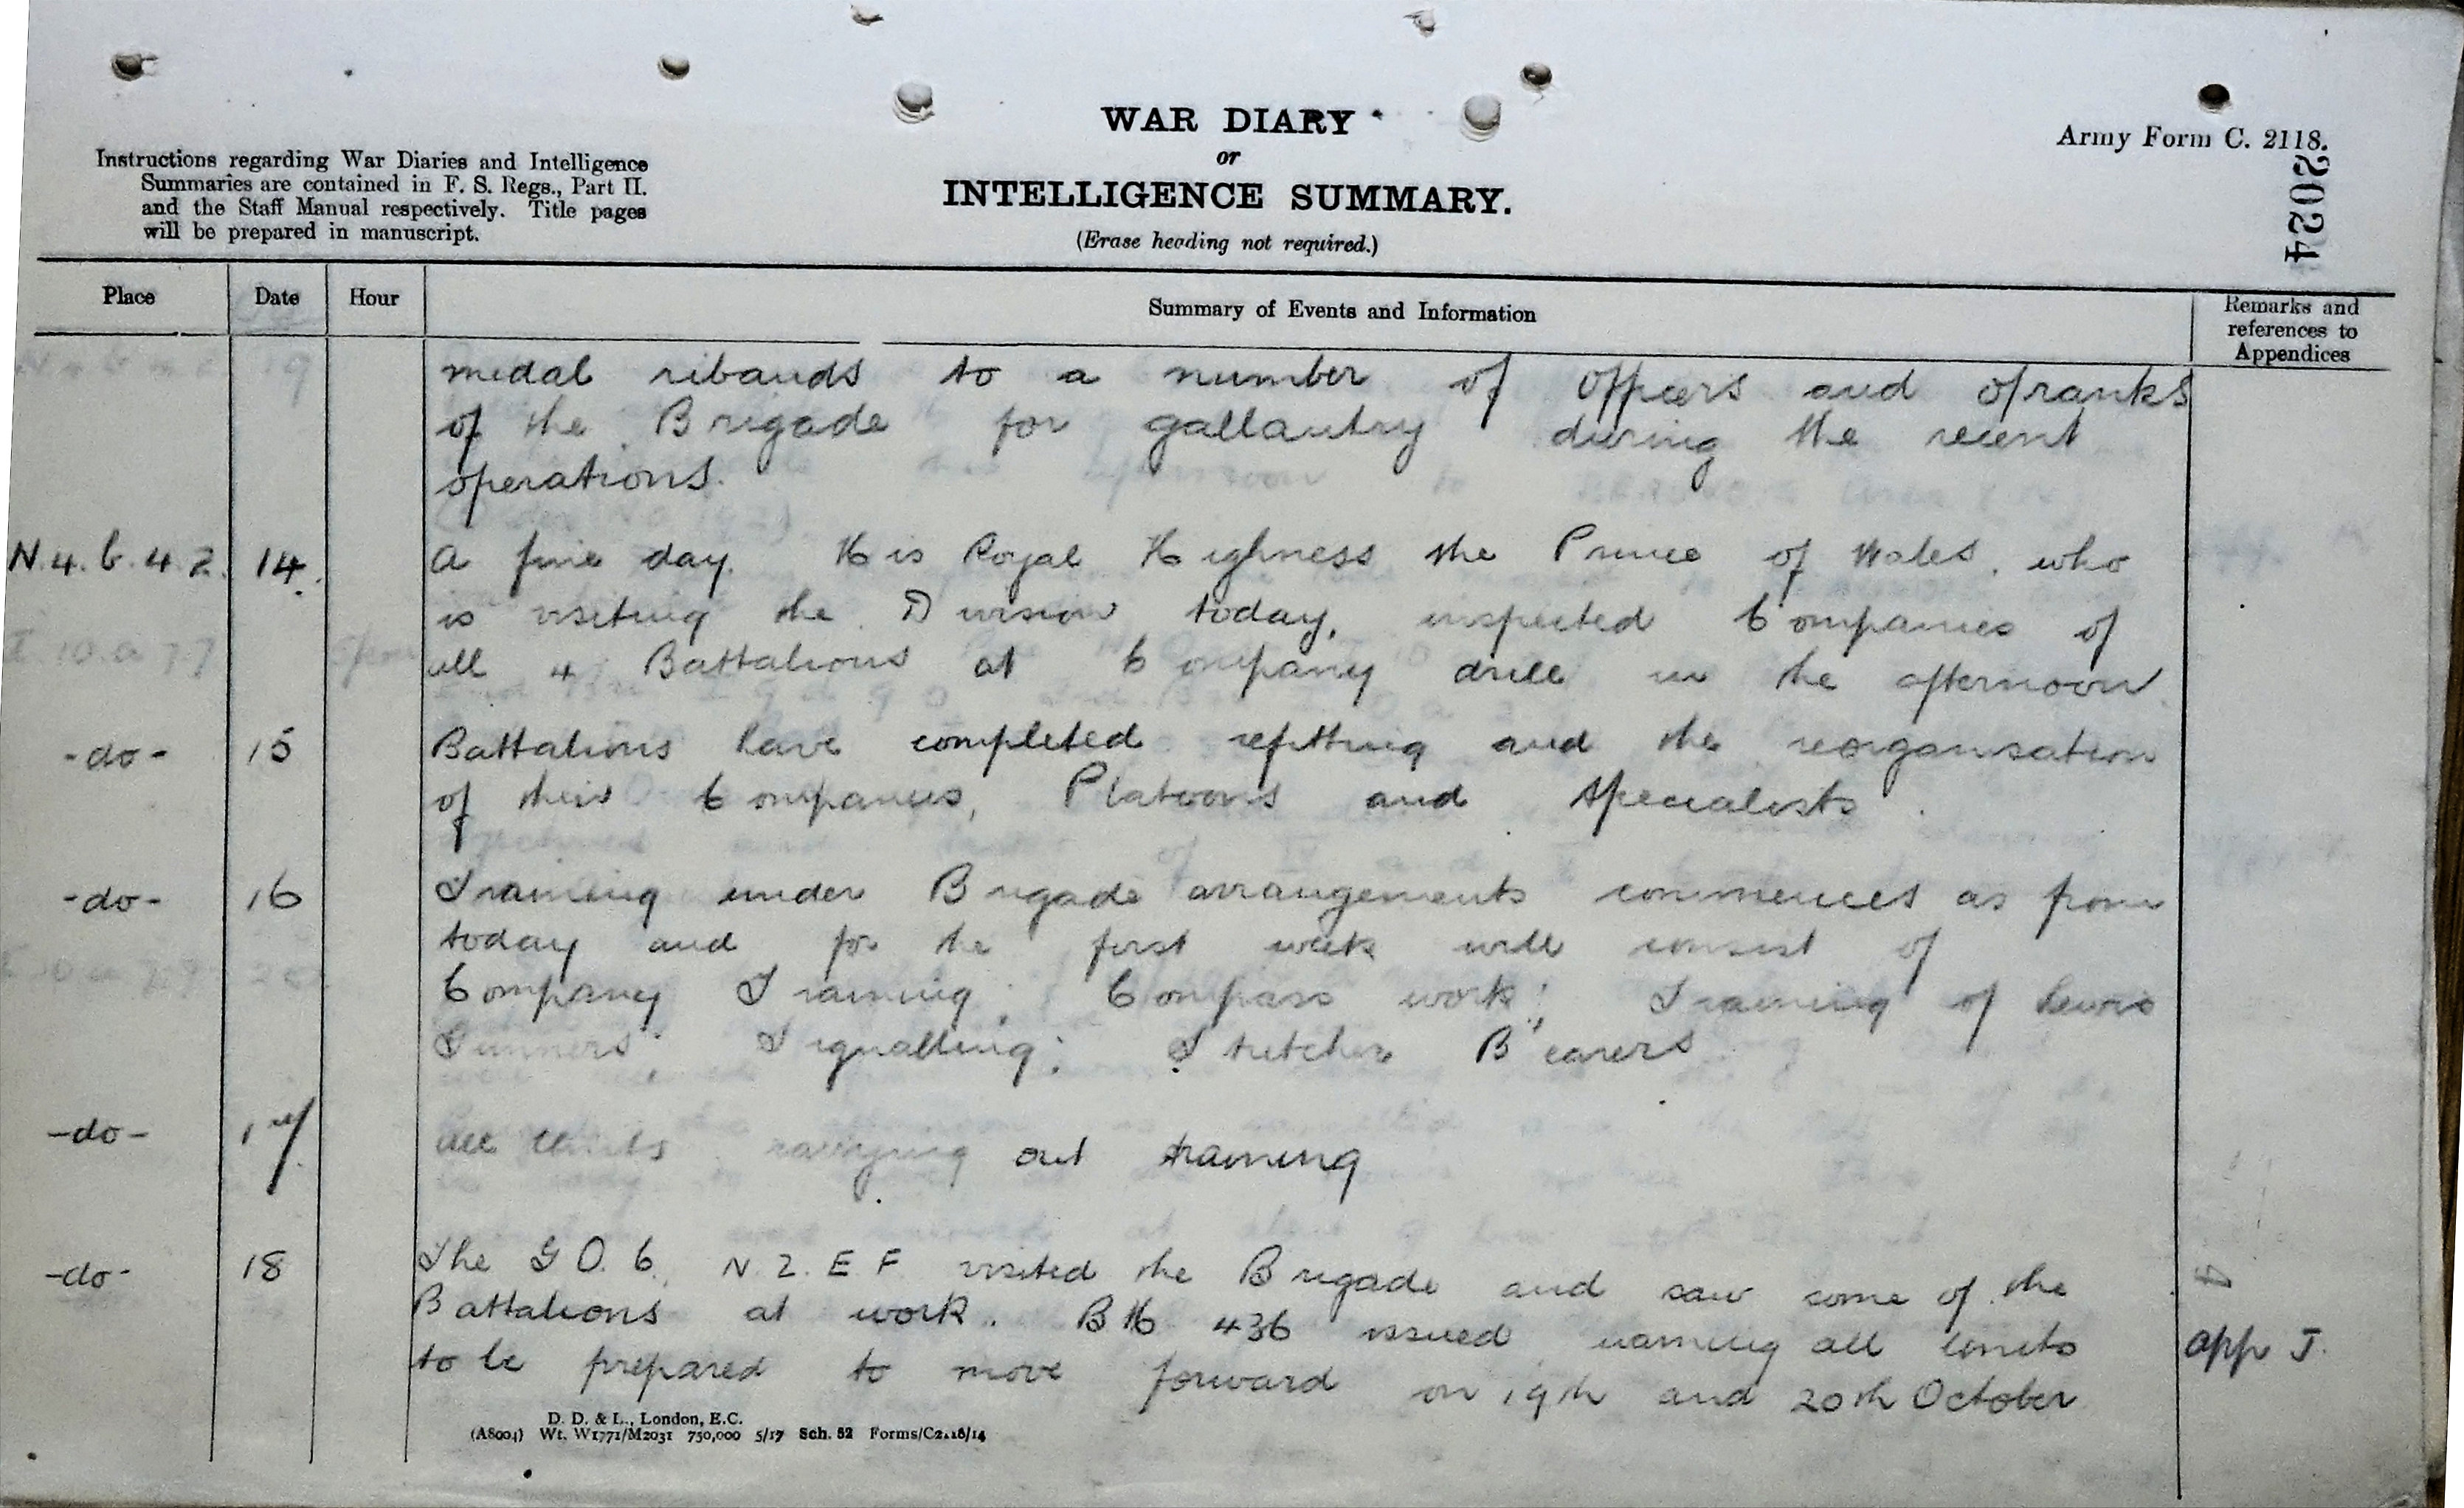 WAR DIARY
or
INTELLIGENCE SUMMARY.
(Erase heading not required.)
Army Form C. 2118.
2024
Instructions regarding War Diaries and Intelligence
Summaries are contained in F. S. Regs., Part II.
and the Staff Manual respectively. Title pages
will be prepared in manuscript.
Place Date Hour Summary of Events and Information Remarks and
references to
Appendices
medal ribands to a number of Officers and ofranks
of the Brigade for gallantry during the recent
operations.
N.4.b.4.2. 14. A fine day. His Royal Highness the Prince of Wales, who
is visiting the Division today, inspected Companies of
all 4 Battalions at Company drill in the afternoon.
-do- 15 Battalions have completed refitting and the reorganisation
of their Companies, Platoons and Specialists.
-do- 16 Training under Brigade arrangements commences as from
today and for the first week will consist of
Company Training; Compass work; Training of Lewis
Gunners; Signalling; Stretcher Bearers
-do- 17 All Units carrying out training
-do- 18 The G.O.C. N.Z.E.F visited the Brigade and saw some of the
Battalions at work. BM 436 issued warning all units app J.
to be prepared to move forward on 19th and 20th October
D. D. & L., London, E.C.
(A8004) Wt. W1771/M2031 750,000 5/17 Sch. 52 Forms/C2118/14